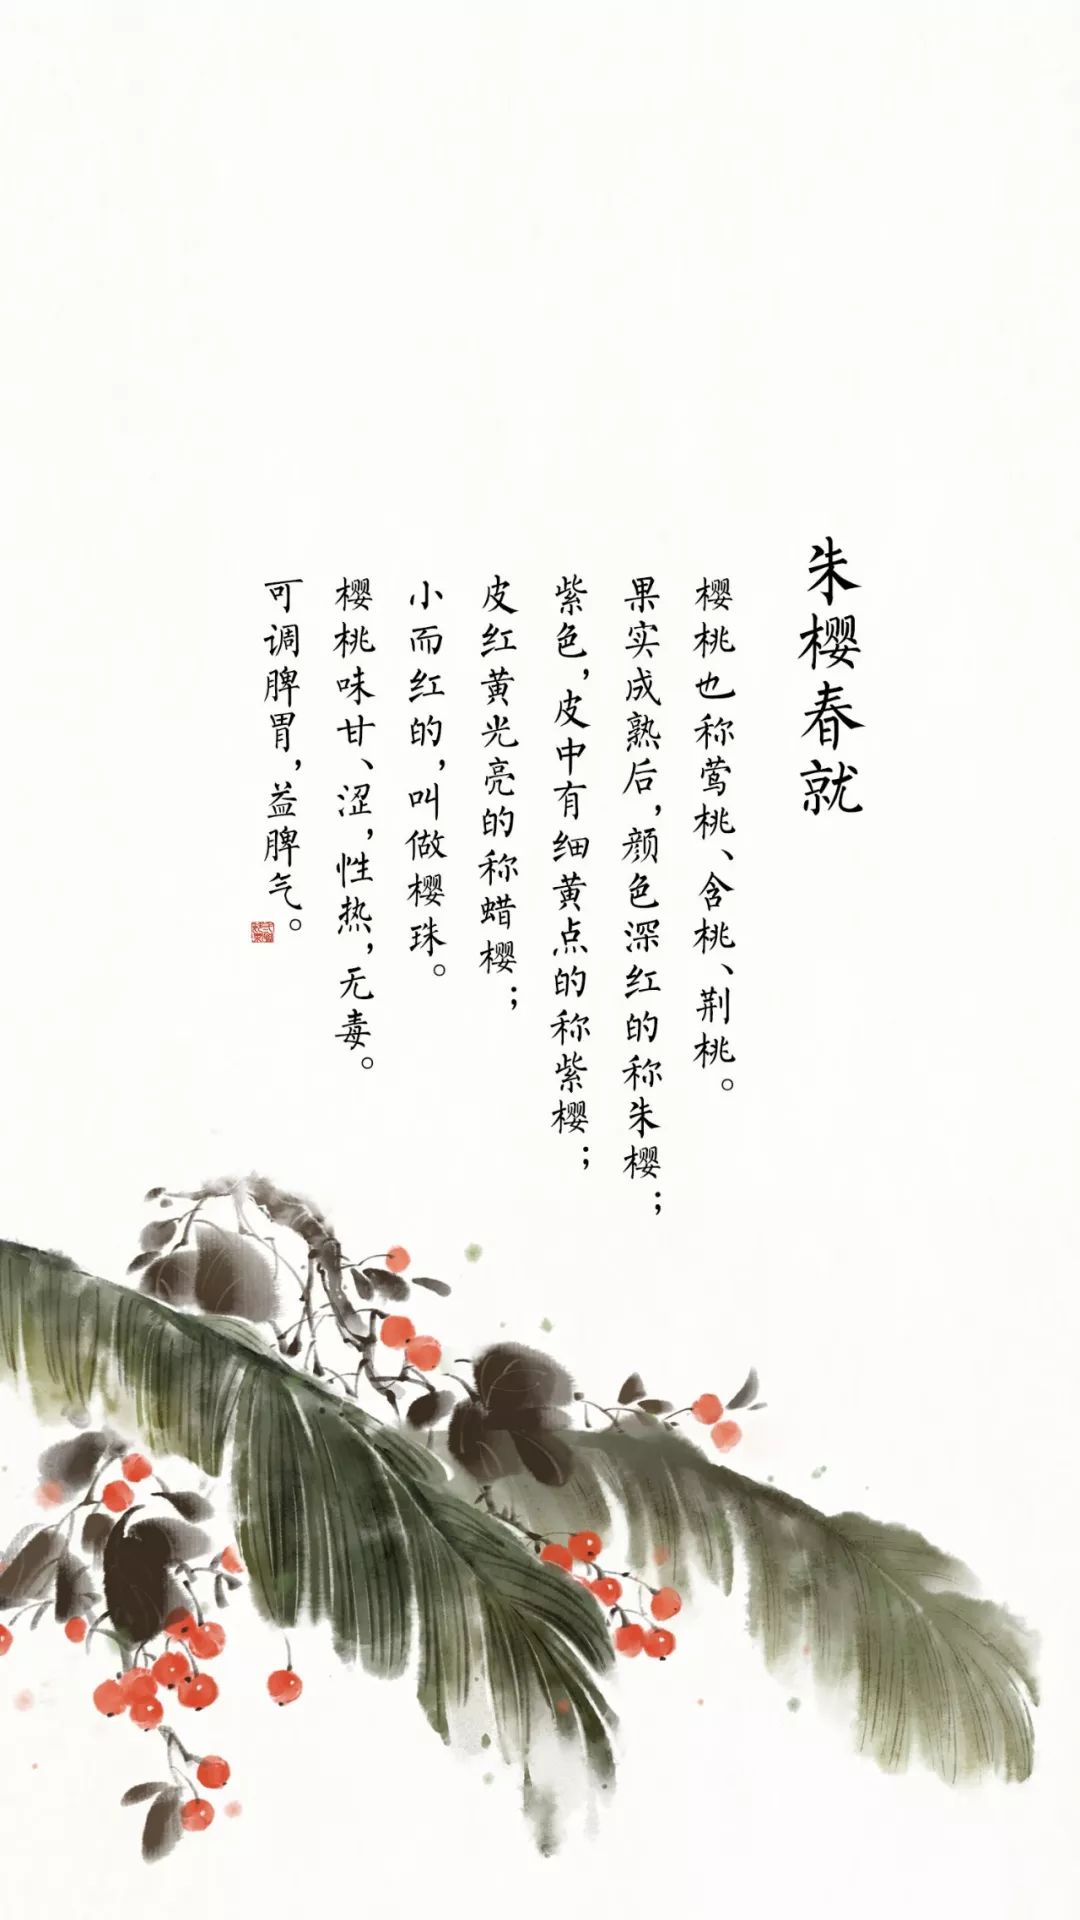 朱樱春就
樱桃也称莺桃、含桃、荆桃。
果实成熟后，颜色深红的称朱樱；
紫色，皮中有细黄点的称紫樱；
皮红黄光亮的称蜡樱；
小而红的，叫做樱珠。
樱桃味甘、涩，性热，无毒。
可调脾胃，益脾气。